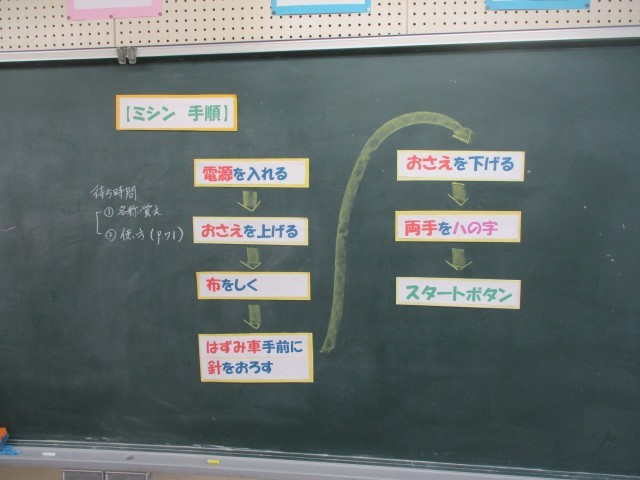 [ミシン 手順]
電源を入れる
おさえを上げる
布をしく
はずみ車手前に
針をおろす
おさえを下げる
両手をハの字
スタートボタン
待ち時間
① 名称覚え
② 使い方 (P.71)